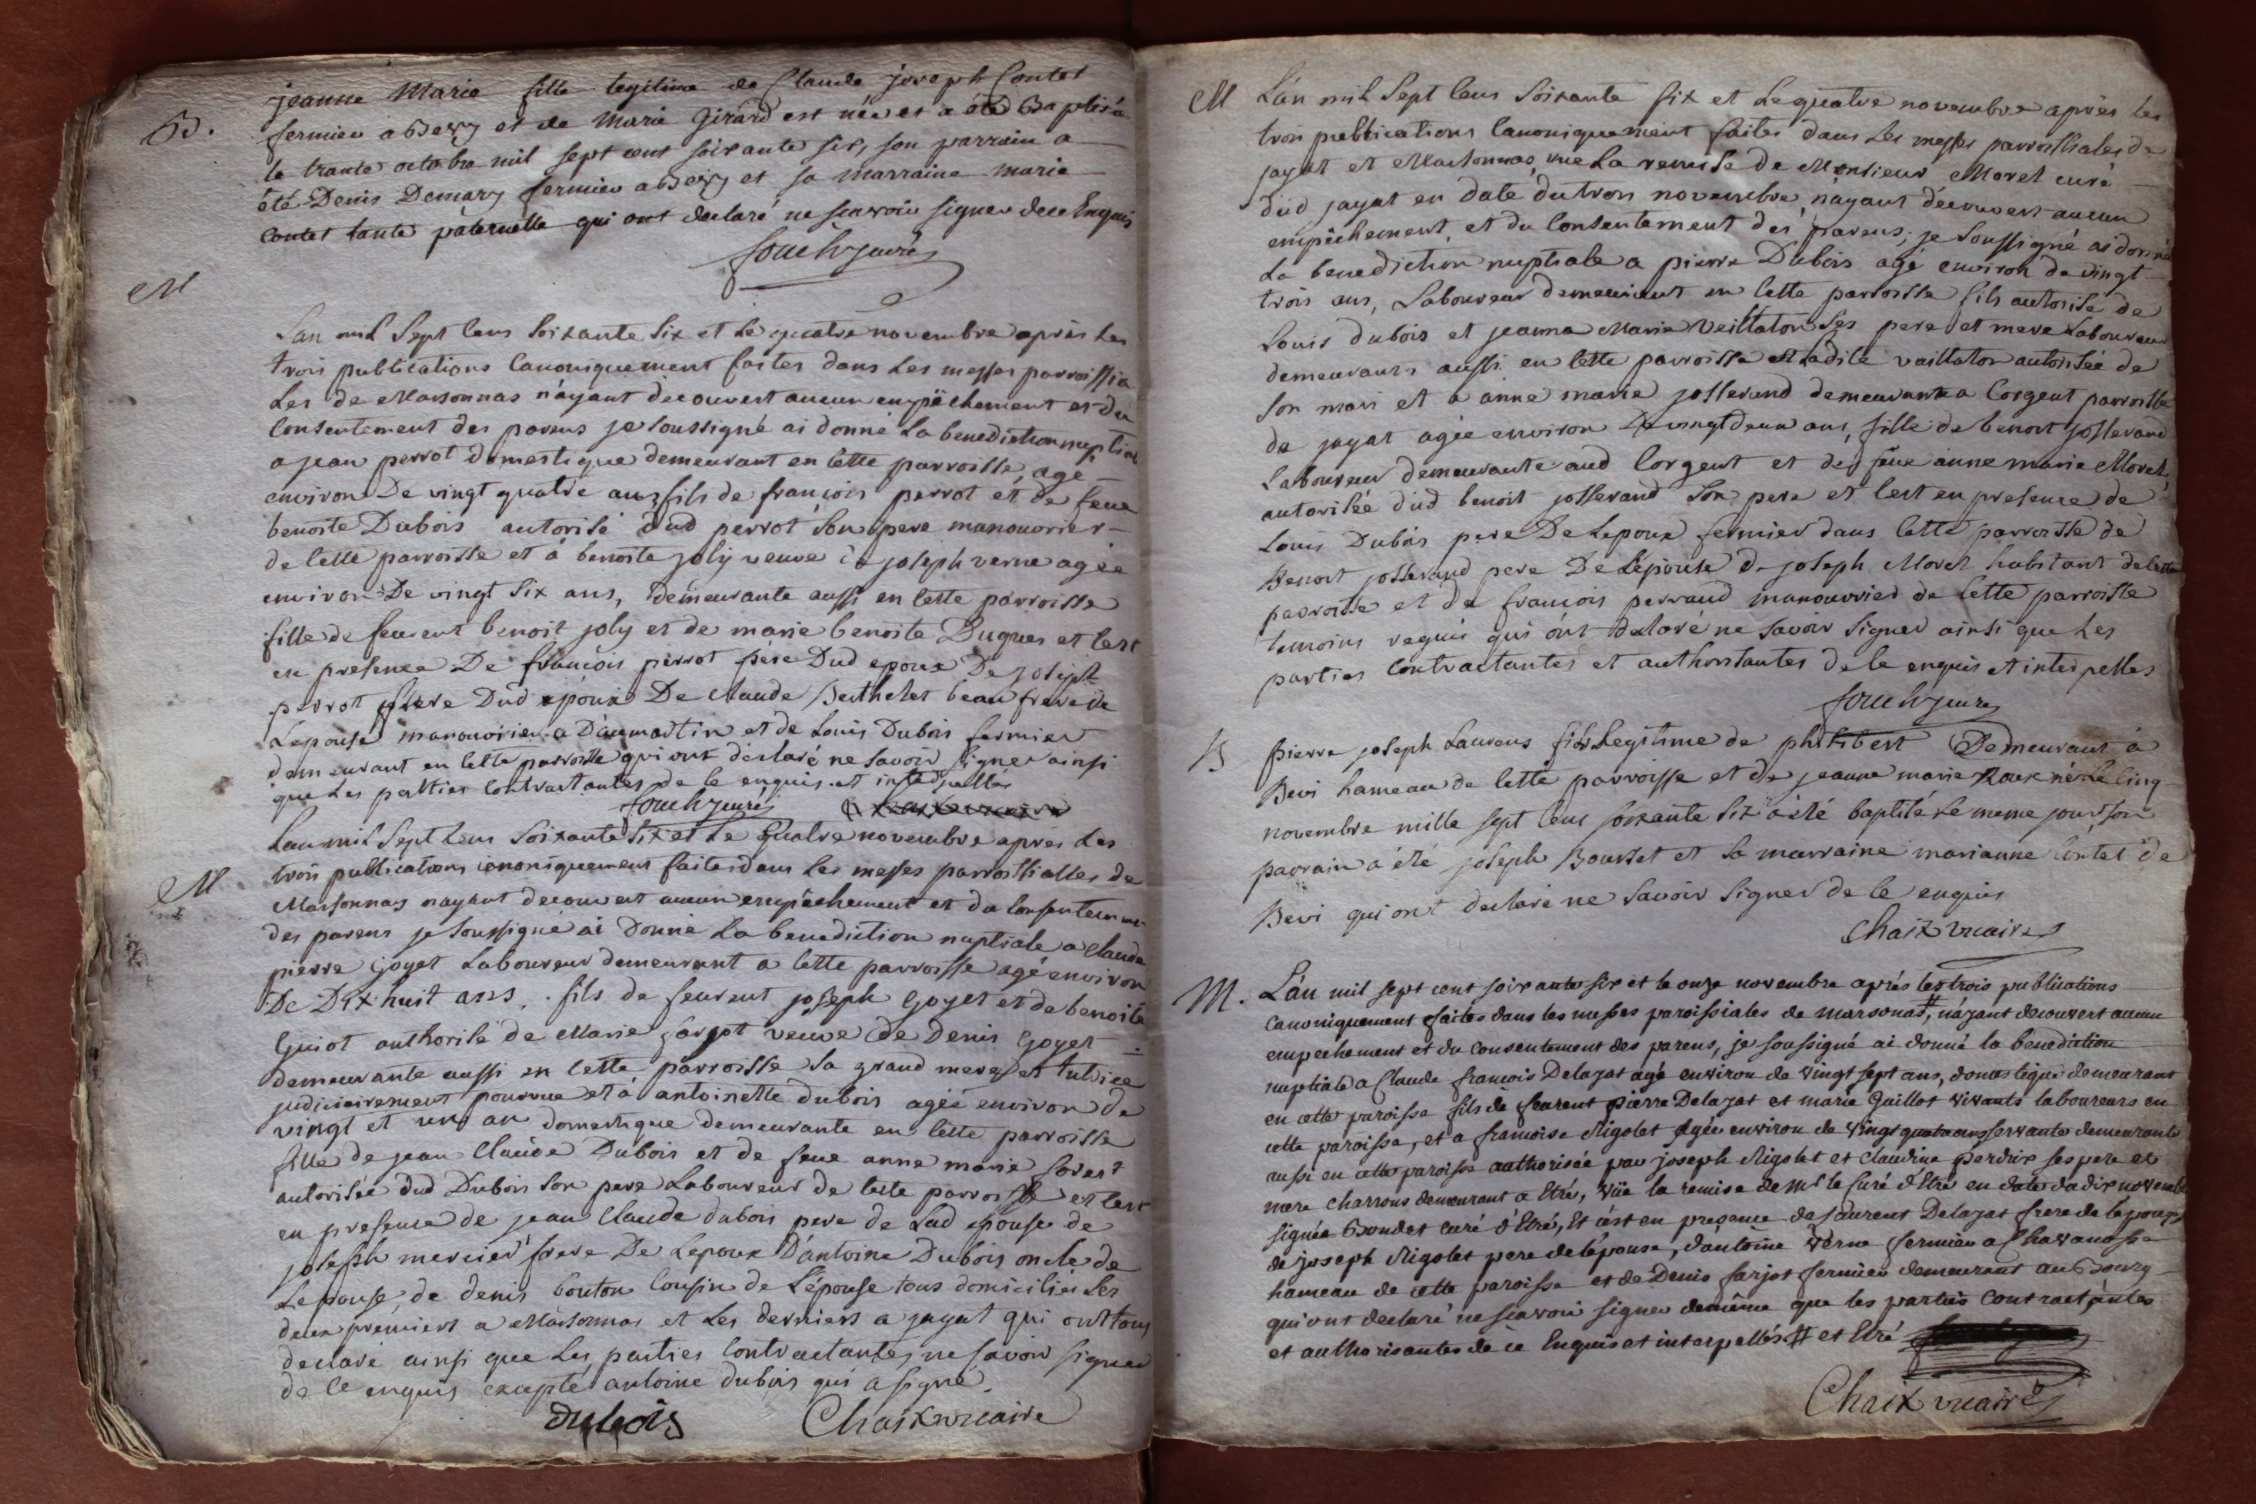 B.
jeanne Marie fille legitime de Claude joseph Contet
fermier a Bevy et de Marie Girard est née et a été Baptisée
le trante octobre mil sept cent soixante six, son parrain a
été Denis Demary fermier a Bevy et sa marraine marie
Contet tante paternelle qui ont declaré ne scavoir signer de ce Enquis
M
Lan mil Sept Cens Soixante Six et Le quatre novembre après Les
trois publications Canoniquement faites dans Les messes parroissia
Les de Marsonnas n'ayant découvert aucun empêchement et du
Consentement des parens je soussigné ai donné La benediction nuptiale
a jean perrot domestique demeurant en Cette parroisse, agé
environ De vingt quatre ans, fils de françois perrot et de feue
benoite Dubois autorisé dud perrot Son pere manouvrier
de Cette parroisse et à benoite joly veuve de joseph verne agée
environ De vingt Six ans, demeurante aussi en Cette parroisse
fille de feu benoit joly et de marie benoite Buques et C'est
en presence De françois perrot pere Dud epoux De joseph
perrot frere Dud epoux De Claude Berthelet beau frere de
Lepouse manouvrier a Daumartin et de Louis Dubois fermier
demeurant en Cette parroisse qui ont déclaré ne Savoir Signer ainsi
que Les parties Contractantes de Ce enquis et interpellés
M
Lan mil Sept Cens Soixante Six et Le Quatre novembre après Les
trois publications canoniquement faites dans Les messes parroissialles de
Marsonnas nayant decouvert aucun empêchement et du Consentement
des parens je Soussigné ai Donné La benediction nuptiale a Claude
pierre Goyet Laboureur demeurant a Cette parroisse agé environ
De Dix huit ans, fils de joseph Goyet et de benoite
Guiot authorisé de Marie farjot veuve de Denis Goyet
demeurante aussi en Cette parroisse Sa grand mere et tutrice
judiciairement pourvue et à antoinette dubois agée environ de
vingt et un an domestique demeurante en Cette parroisse
fille de jean Claude Dubois et de feue anne marie
autorisée dud Dubois Son pere Laboureur de Cette parroisse et C'est
en presence de jean Claude dubois pere de Lad epouse de
joseph mercier frere De Lepoux D'antoine Dubois oncle de
Lepouse, de denis bouton Cousin de L'épouse tous domiciliés Les
deux premiers a Marsonnas et Les derniers a jayat qui ont tous
declaré ainsi que Les parties Contractantes ne Savoir Signer
de Ce enquis excepté antoine dubois qui a signé.
dubois Chaix vicaire
M
L'an mil Sept Cens Soixante Six et Le quatre novembre après les
trois publications Canoniquement faites dans Les messes parroissiales de
jayat et Marsonnas, vue La remise de Monsieur Morel curé
dud jayat en date du trois novembre n'ayant découvert aucun
empêchement et du Consentement des parens, je Soussigné ai donné
La benediction nuptiale a pierre Dubois agé environ de vingt
trois ans, Laboureur demeurant en Cette parroisse fils autorisé de
Louis dubois et jeanne Marie Veillaton Ses pere et mere Laboureurs
demeurants aussi en Cette parroisse et Ladite vaillaton autorisée de
Son mari et a anne marie josserand demeurante a Corgent parroisse
de jayat agée environ de vingt deux ans, fille de benoit josserand
Laboureur demeurante aud Corgent et de feue anne marie Morel,
autorisée dud benoit josserand Son pere et C'est en presence de
Louis Dubois pere De Lepoux fermier dans Cette parroisse de
Benoit josserand pere De Lépouse de joseph Morel habitant de Cette
parroisse et de françois perraud manouvrier de Cette parroisse
temoins requis qui ont déclaré ne Savoir Signer ainsi que Les
parties Contractantes et authorisantes de Ce enquis et interpellés
B
Pierre joseph Laurens fils Legitime de philibert Demeurant à
Bevi hameau de Cette parroisse et de jeanne marie Roux né Le Cinq
novembre mille sept Cens soixante Six a été baptisé Le meme jour son
parrain a été joseph Bourset et Sa marraine marianne Contet de
Bevi qui ont declaré ne Savoir Signer de Ce enquis
Chaix vicaire
M.
L'an mil sept cent soixante six et le onze novembre après les trois publications
canoniquement faites dans les messes paroissiales de marsonas #, n'ayant decouvert aucun
empechement et du consentement des parens, je soussigné ai donné la benediction
nuptiale a Claude françois Delayat agé environ de vingt sept ans, domestique demeurant
en cette paroisse fils de pierre Delayat et marie Guillot vivants laboureurs en
cette paroisse, et a françoise Rigolet agée environ de vingt quatre ans servante demeurante
aussi en cette paroisse authorisée par joseph Rigolet et Claudine perdrix ses pere et
mere charrons demeurant a Etré, vüe la remise de Mr le Curé d'Etré en date du dix novembre
signée Bondet curé d'Etré, Et c'est en presence de Laurent Delayat frere de l'époux
de joseph Rigolet pere de l'épouse, d'antoine verne fermier a Chavanosse
hameau de cette paroisse et de Denis farjot fermier demeurant au Bourg
qui ont declaré ne scavoir signer de même que les parties contractantes
et authorisantes de ce Enquis et interpellés # et Etré
Chaix vicaire